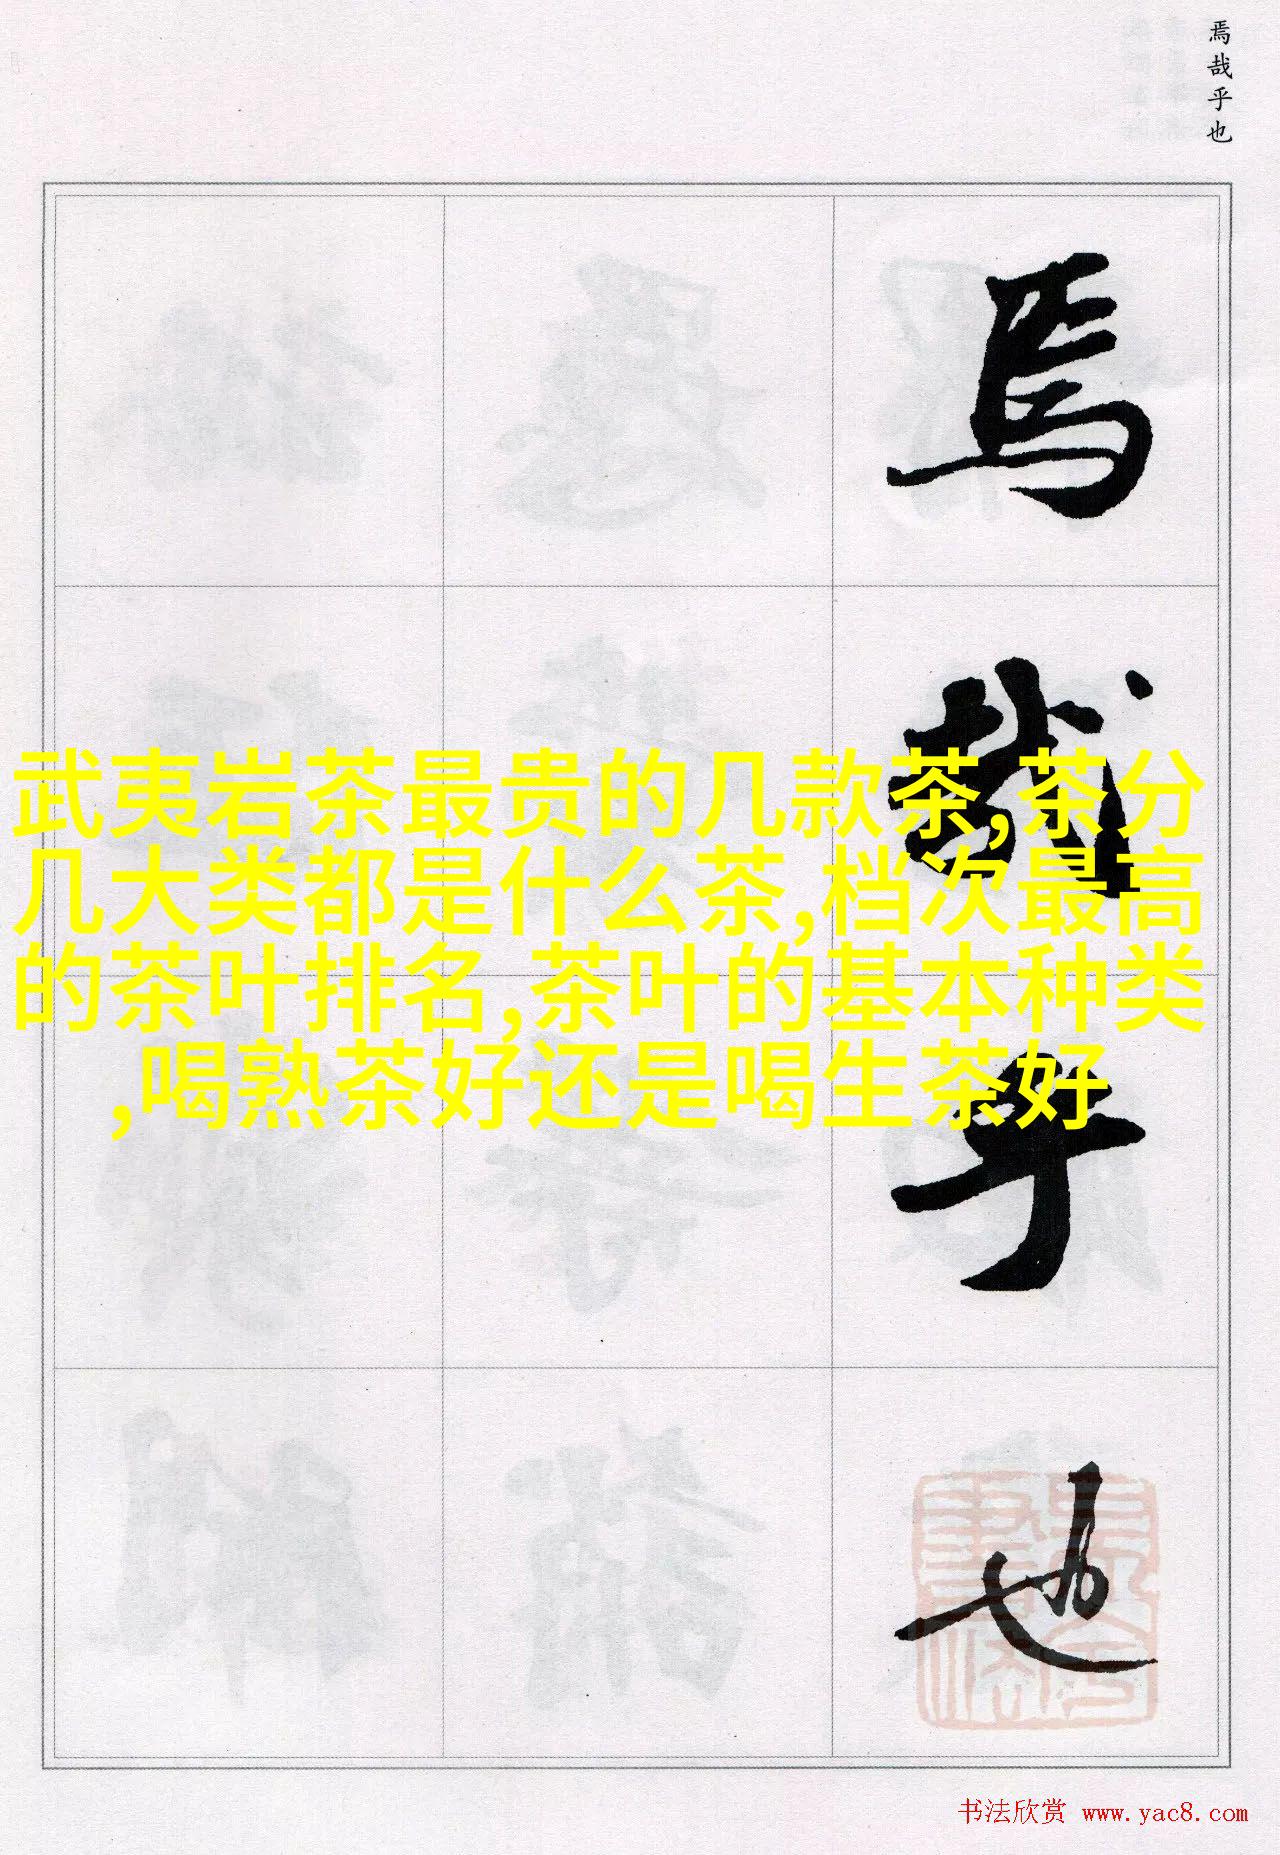 焉哉乎也
焉
哉
乎
也
武夷岩茶最贵的几款茶,茶分
几大类都是什么茶,档次最高
的茶叶排名,茶叶的基本种类
,喝熟茶好还是喝生茶好
书法欣赏 www.yac8.com